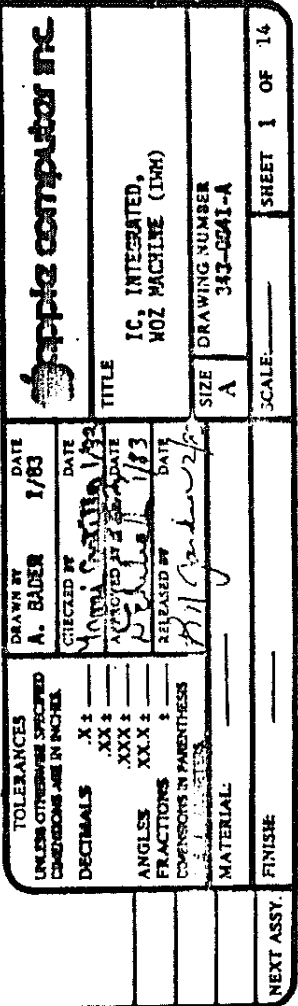 TOLERANCES
UNLESS OTHERWISE SPECIFIED
DIMENSIONS ARE IN INCHES.
DECIMALS .X ±
.XX ±
.XXX ±
ANGLES XX.X ±
FRACTIONS ±
DIMENSIONS IN PARENTHESIS
MATERIAL:
FINISH:
NEXT ASSY.
DRAWN BY DATE
A. BADER 1/83
CHECKED BY DATE
APPROVED BY DATE
1/83
RELEASED BY DATE
apple computer inc.
TITLE
IC, INTEGRATED,
WOZ MACHINE (IWM)
SIZE
A
DRAWING NUMBER
343-0041-A
SCALE:
SHEET 1 OF 14